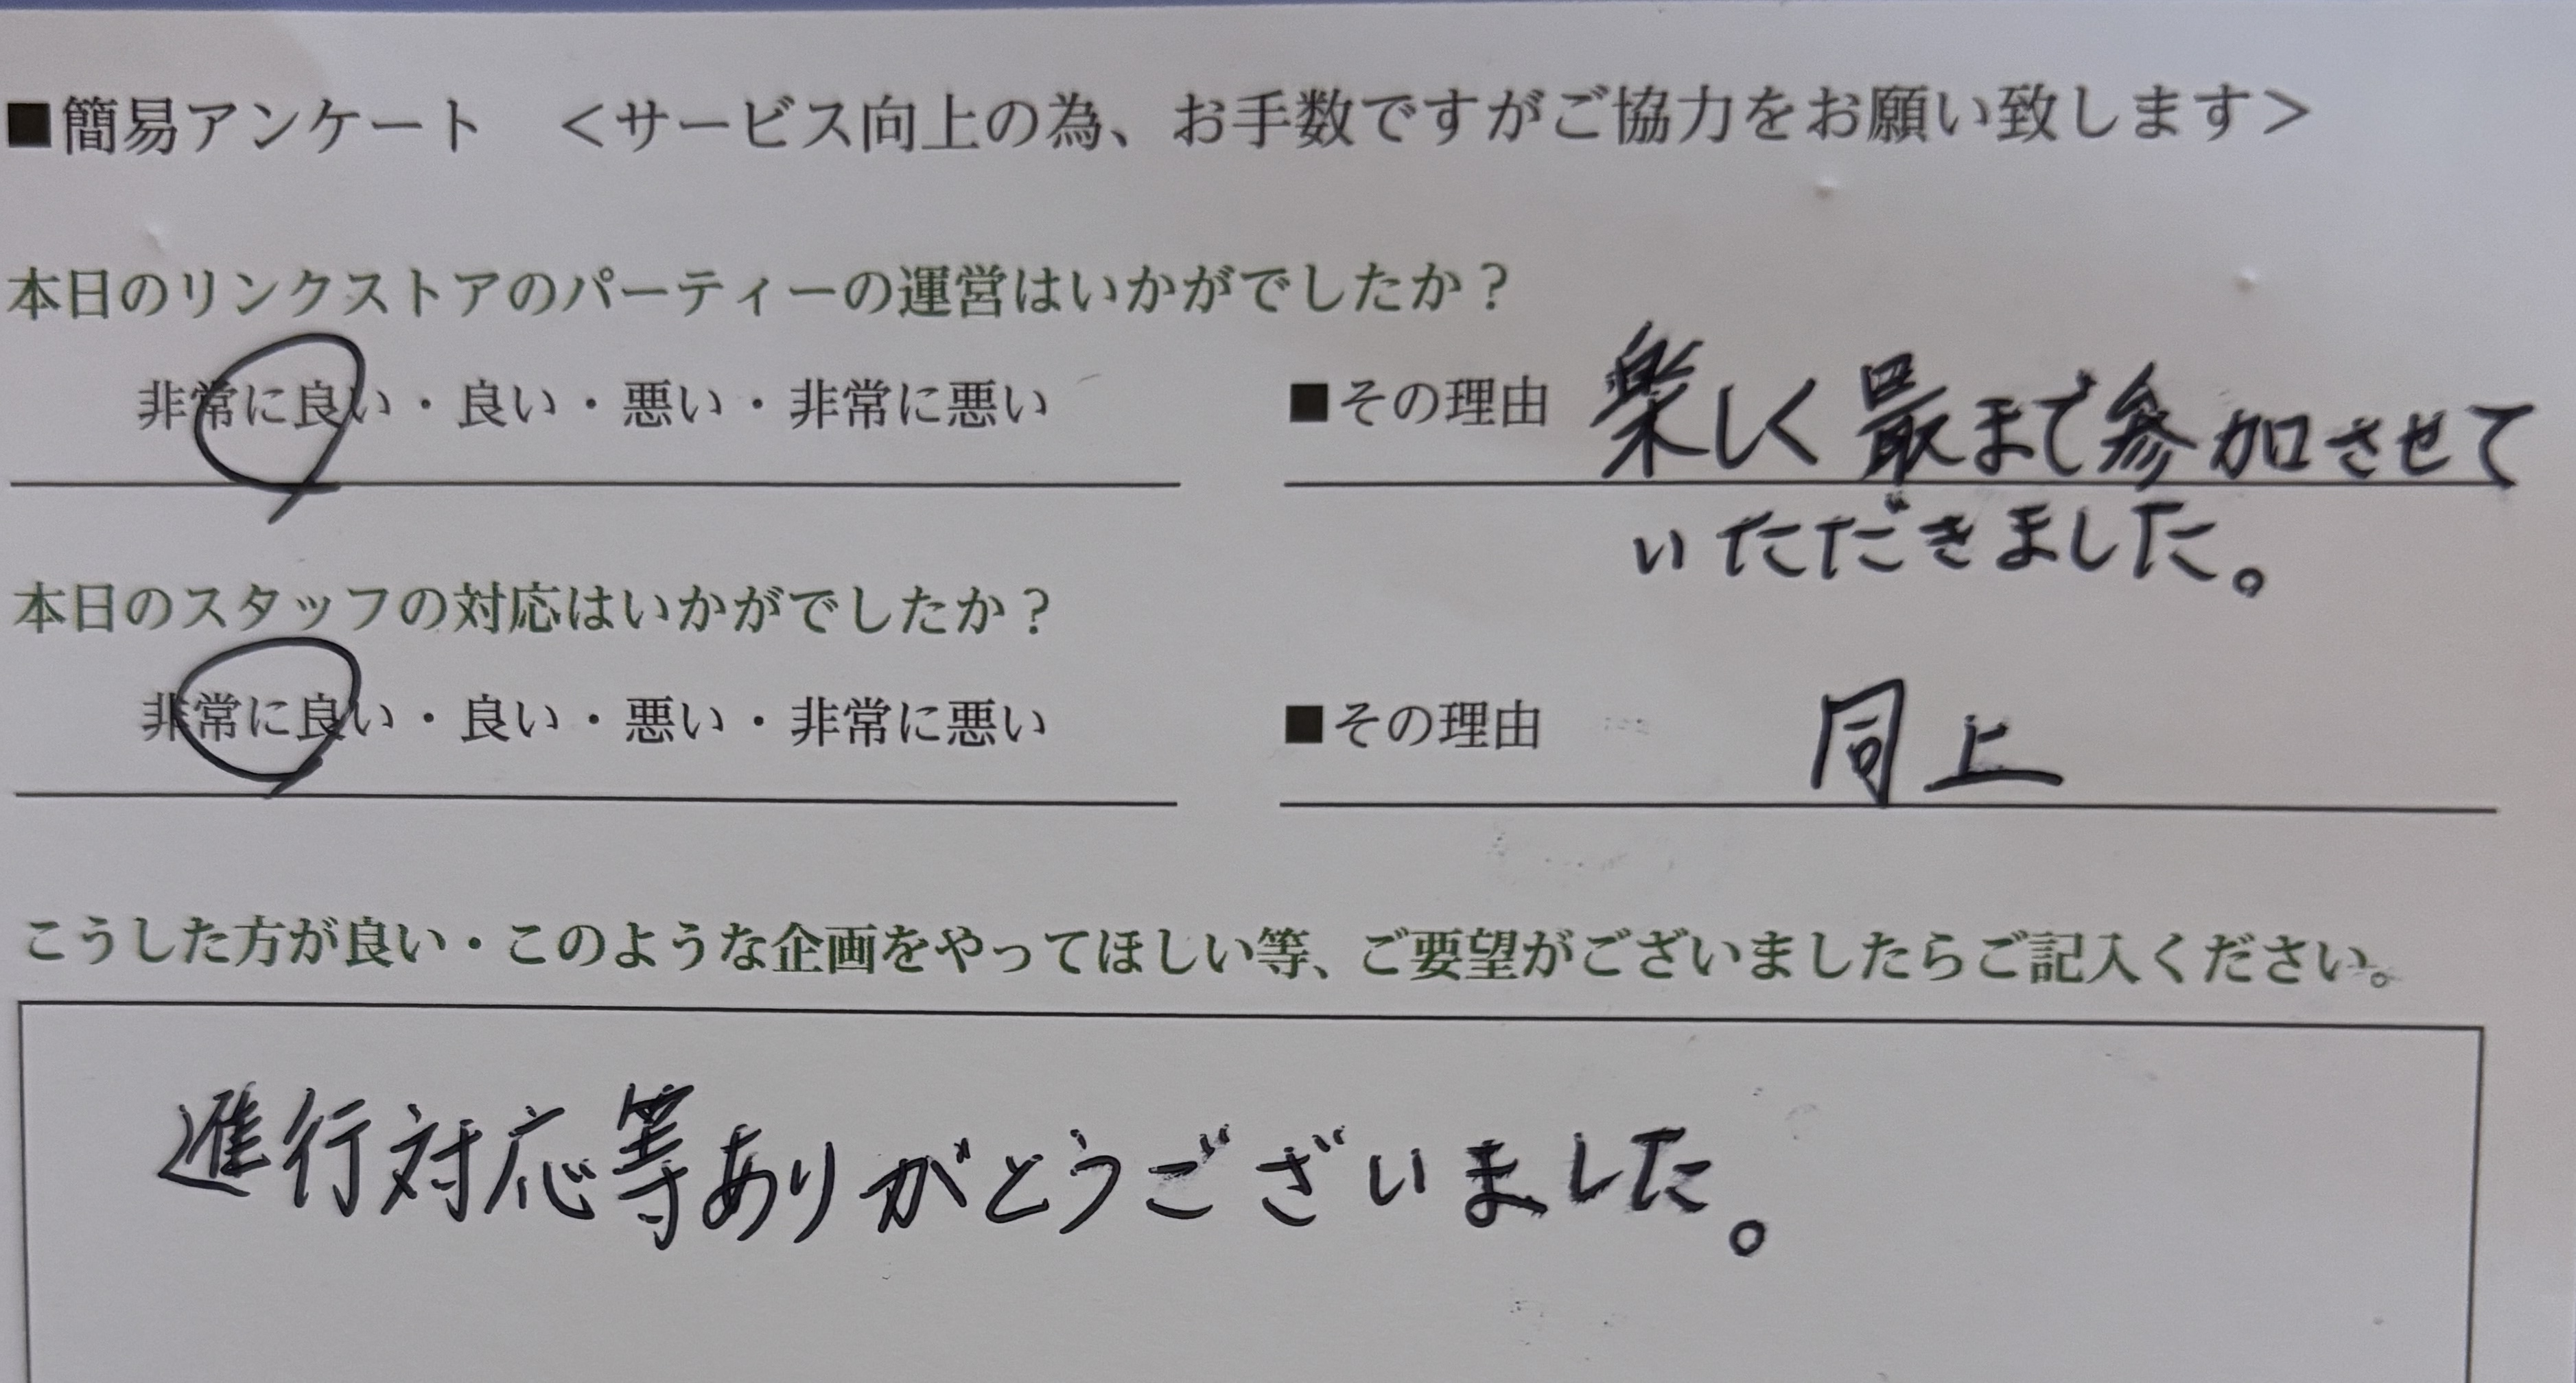 ■簡易アンケート　＜サービス向上の為、お手数ですがご協力をお願い致します＞
本日のリンクストアのパーティーの運営はいかがでしたか？
非常に良い・良い・悪い・非常に悪い　■その理由　楽しく最まで参加させて
いただきました。
本日のスタッフの対応はいかがでしたか？
非常に良い・良い・悪い・非常に悪い　■その理由　同上
こうした方が良い・このような企画をやってほしい等、ご要望がございましたらご記入ください。
進行対応等ありがとうございました。